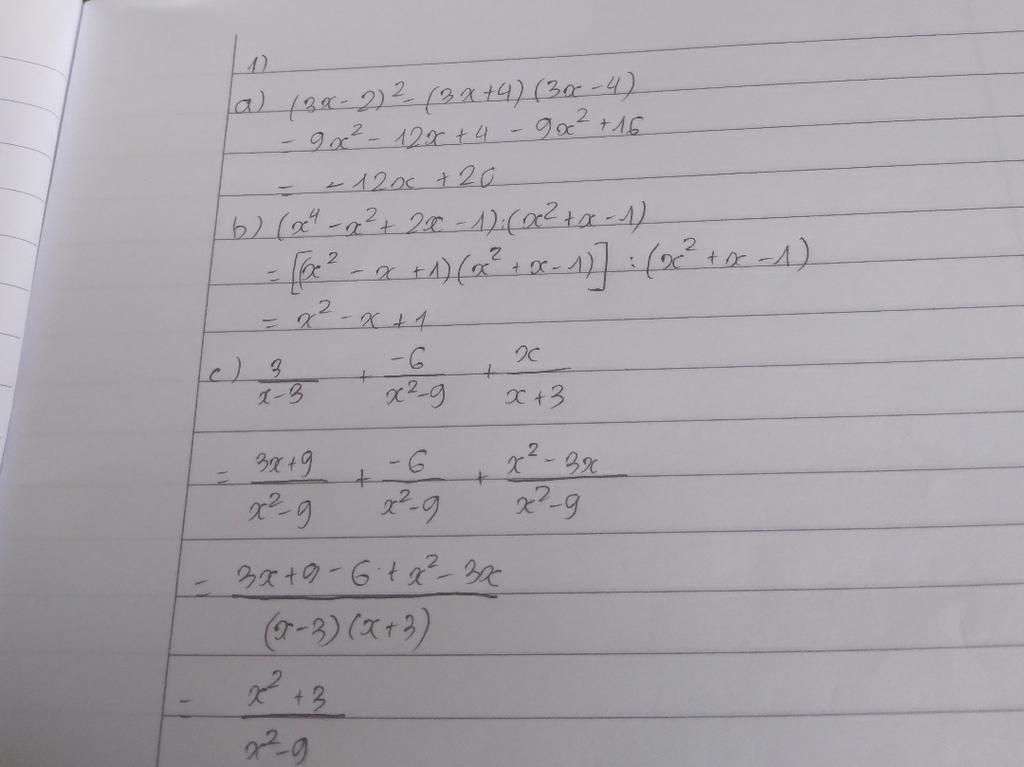 1)
a) (3x-2)² - (3x+4)(3x-4)
= 9x² - 12x + 4 - 9x² + 16
= -12x + 20
b) (x⁴ - x² + 2x - 1):(x² + x - 1)
= [(x² - x + 1)(x² + x - 1)] : (x² + x - 1)
= x² - x + 1
c) 3/(x-3) + -6/(x²-9) + x/(x+3)
= (3x+9)/(x²-9) + -6/(x²-9) + (x²-3x)/(x²-9)
= (3x+9-6+x²-3x)/((x-3)(x+3))
= (x²+3)/(x²-9)